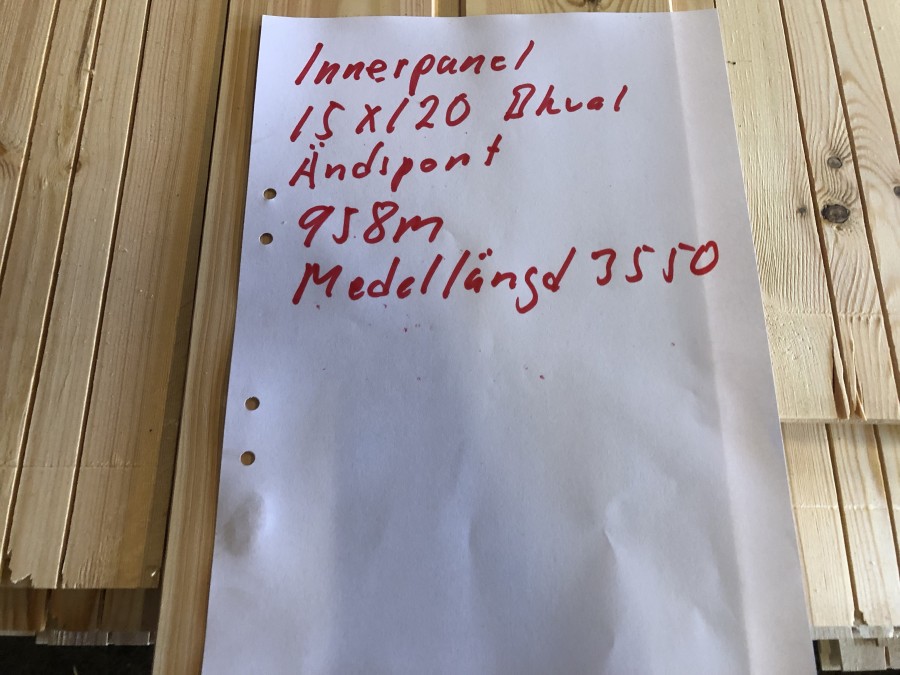 Innerpanel
15x120 Bkval
Ändspont
958m
Medellängd 3550